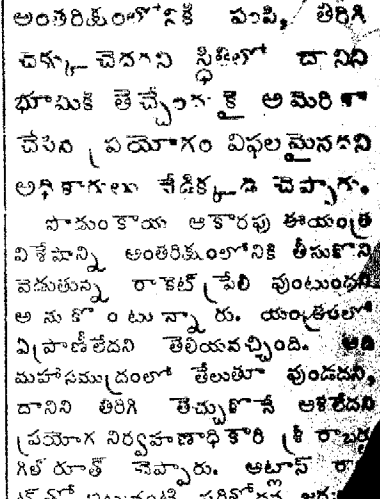 అంతరిక్షంలోనికి పంపి, తిరిగి
చెక్కు చెదరని స్థితిలో దానిని
భూమికి తెచ్చేందు కై అమెరికా
చేసిన ప్రయోగం విఫల మైనదని
అధికారులు నేడిక్క డ చెప్పారు.
సొరకాయ ఆకారపు ఈయంత్ర
విశేషాన్ని అంతరిక్షంలోనికి తీసుకొని
వెడుతున్న రాకెట్ ప్రేలి వుంటుందని
అ ను కొ ం టు న్నా రు. యంత్రతలో
ఏప్రాణీలేదని తెలియవచ్చింది. అది
మహాసముద్రంలో తేలుతూ వుండదని,
దానిని తిరిగి తెచ్చుకొనే ఆశలేదని
ప్రయోగ నిర్వహణాధి కారి శ్రీ రాబర్ట
గిల్ రూత్ చెప్పారు. ఆట్లాస్ రా